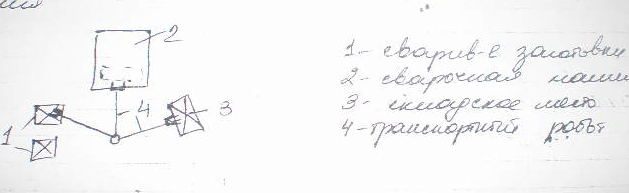 2
1 4 3
1 - сварив-е заготовки
2 - сварочная маши
3 - складское место
4 - транспортный робот